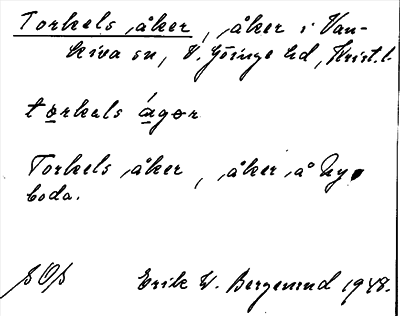 Torkels åker, åker i Van-
kiva sn, V. Göinge hd, Krist. l.
torkels ágør
Torkels åker, åker å Ny-
boda.
SOS Erik W. Bergenrud 1948.